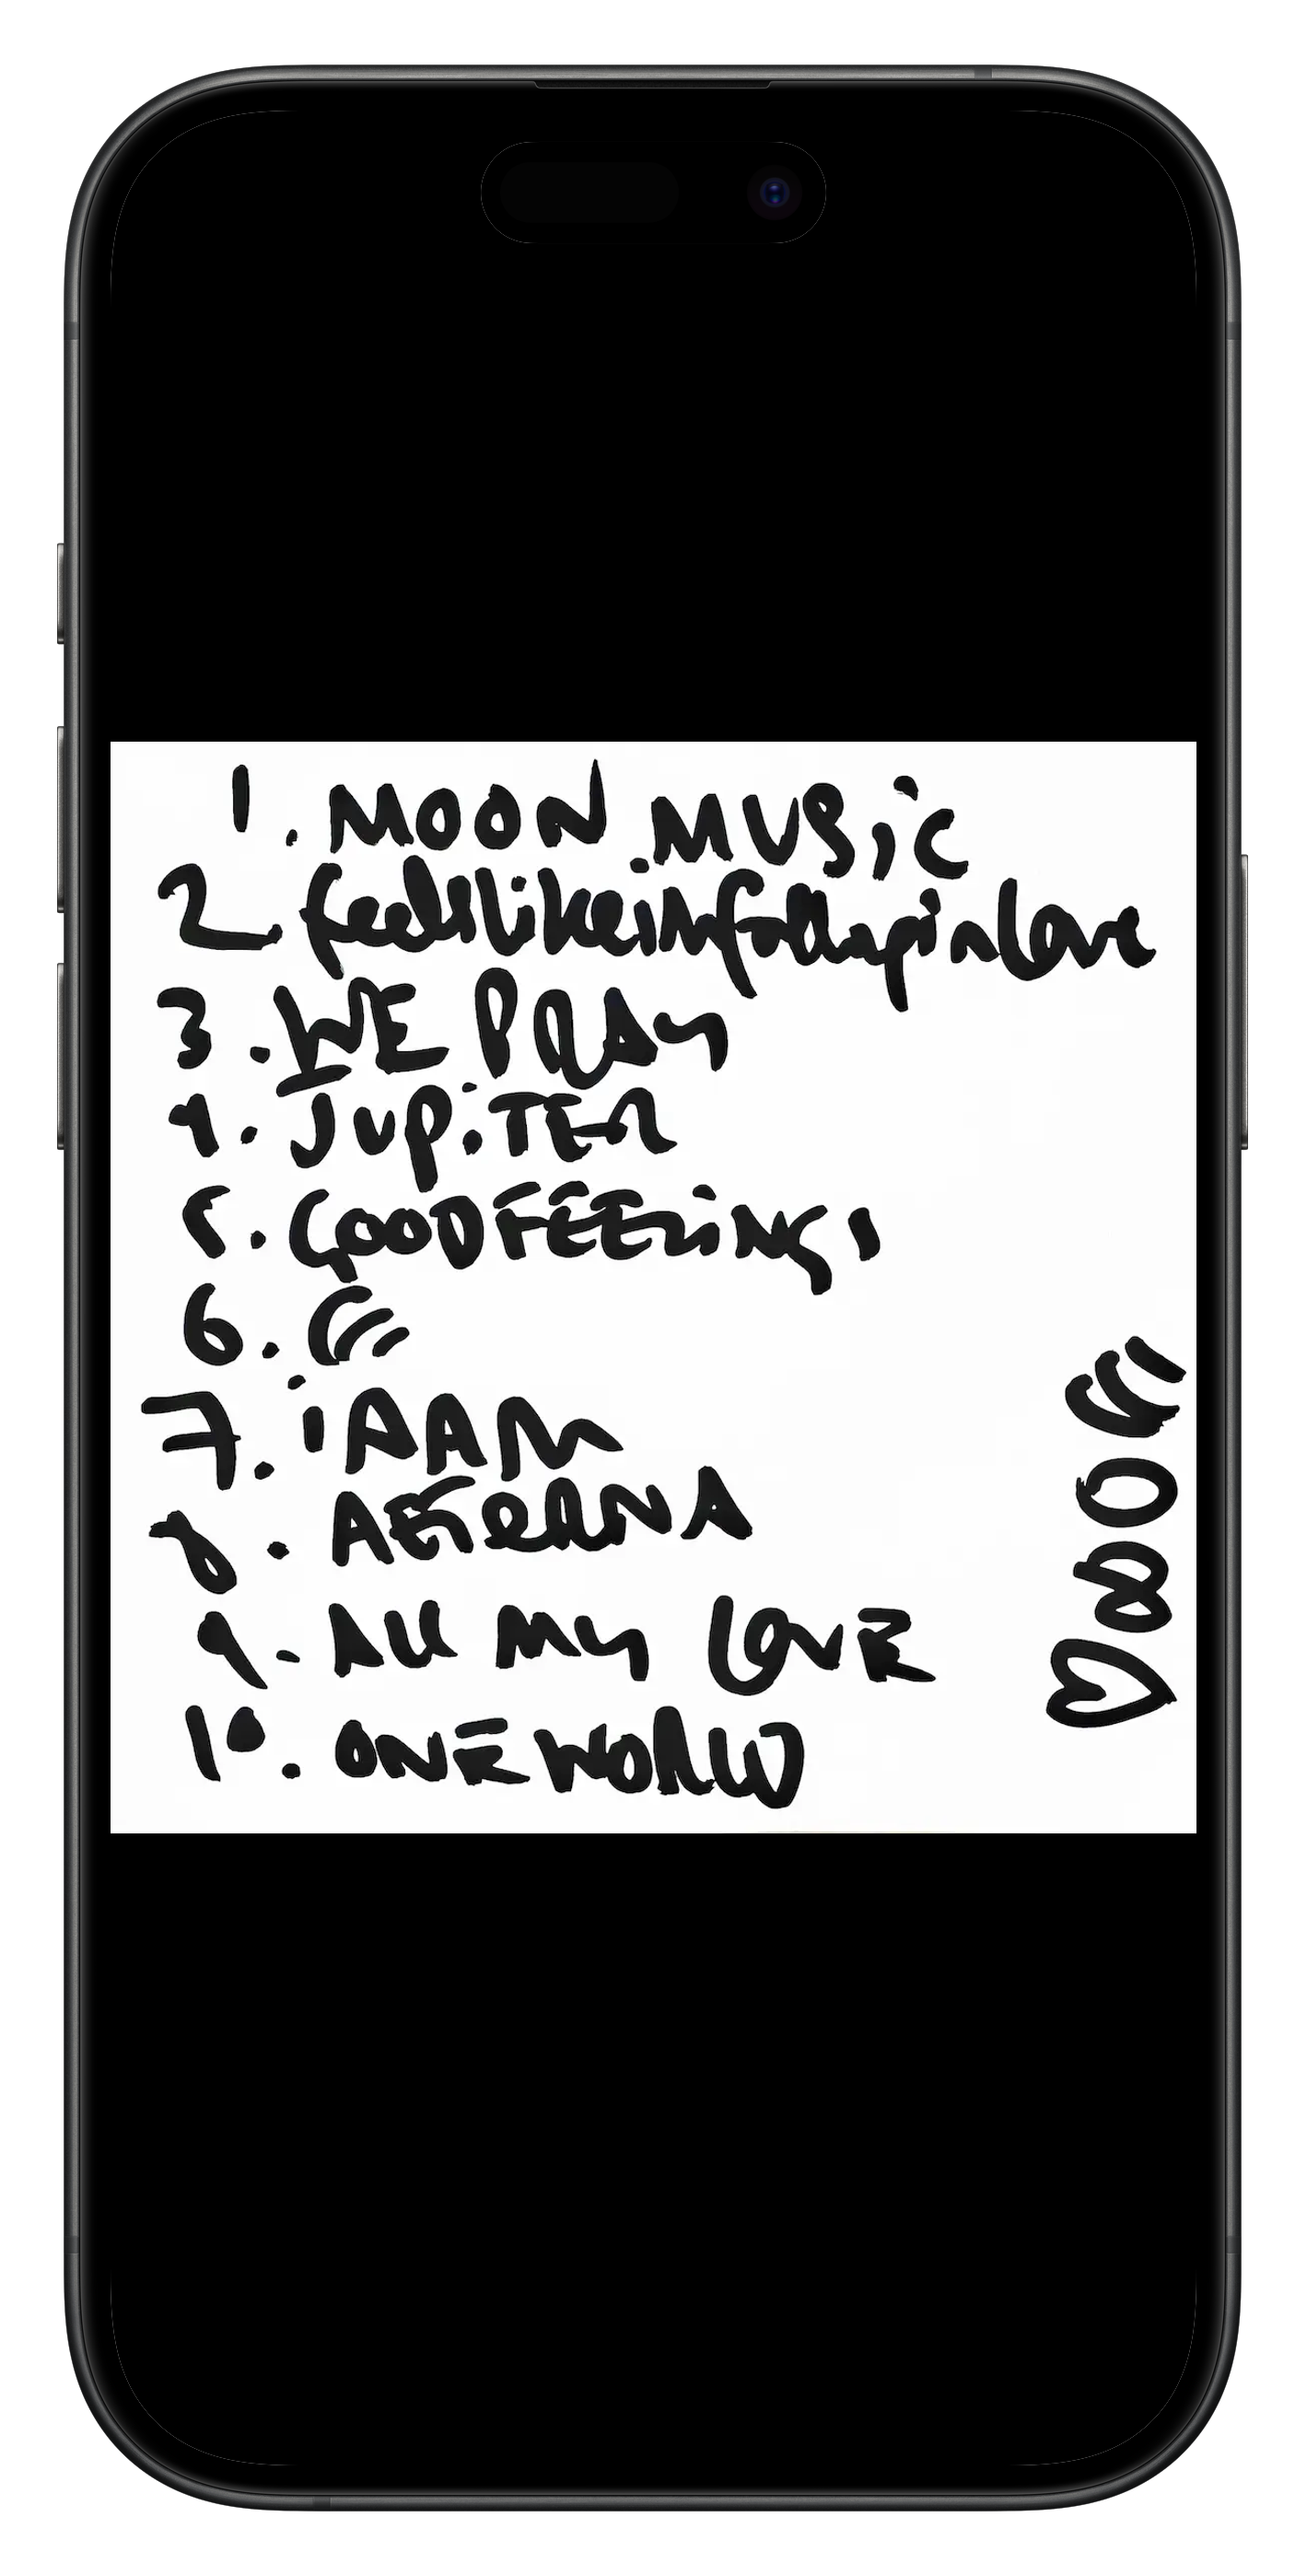 1. MOON MUSiC
2. feelslikeimfallinginlove
3. WE PRAY
4. JUPiTER
5. GOOD FEELiNGS
6.
7. iAAM
8. AETERNA
9. ALL MY LOVE
10. ONE WORLD